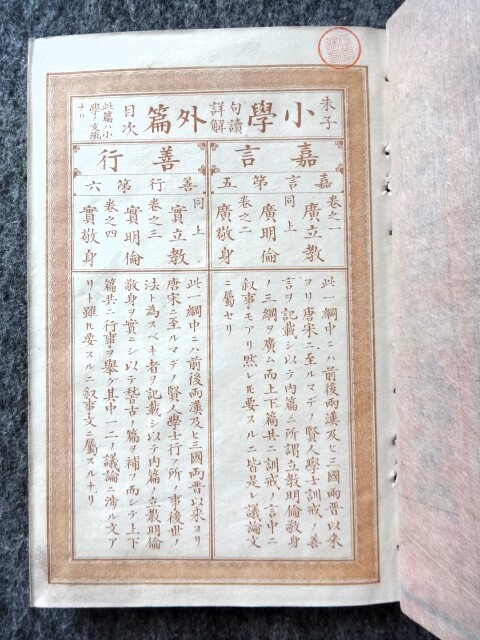 朱子
小學
句讀
詳解
外篇
目次
此篇ハ小
學ノ支流
ナリ
嘉言
善行
嘉言第五
善行第六
卷之一
廣立教
同上
廣明倫
卷之二
廣敬身
同上
實立教
卷之三
實明倫
卷之四
實敬身
此一綱中ニハ前後兩漢及ヒ三國兩晋以來
ヨリ唐宋ニ至ルマデノ賢人學士訓戒ノ善
言ヲ記載シ以テ内篇ニ所謂立教明倫敬身
ノ三綱ヲ廣ム而上下篇共ニ訓戒ノ言中ニ
叙事モアリ然レ𪜈要スルニ皆是レ議論文
ニ屬セリ
此一綱中ニハ前後兩漢及ヒ三國兩晋以來ヨリ
唐宋ニ至ルマデノ賢人學士行フ所ノ事後世ノ
法ト為スベキ者ヲ記載シ以テ内篇ノ立教明倫
敬身ヲ實ニシ以テ稽古ノ篇ヲ補フ而シテ上下
篇共ニ行事ヲ擧ケ其中一二ノ議論ニ渉ル文ア
リト雖𪜈要スルニ叙事文ニ屬スルナリ